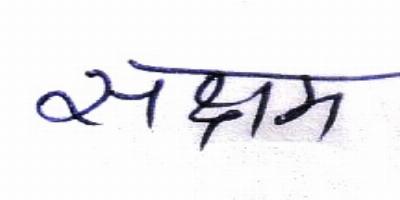 सक्षम